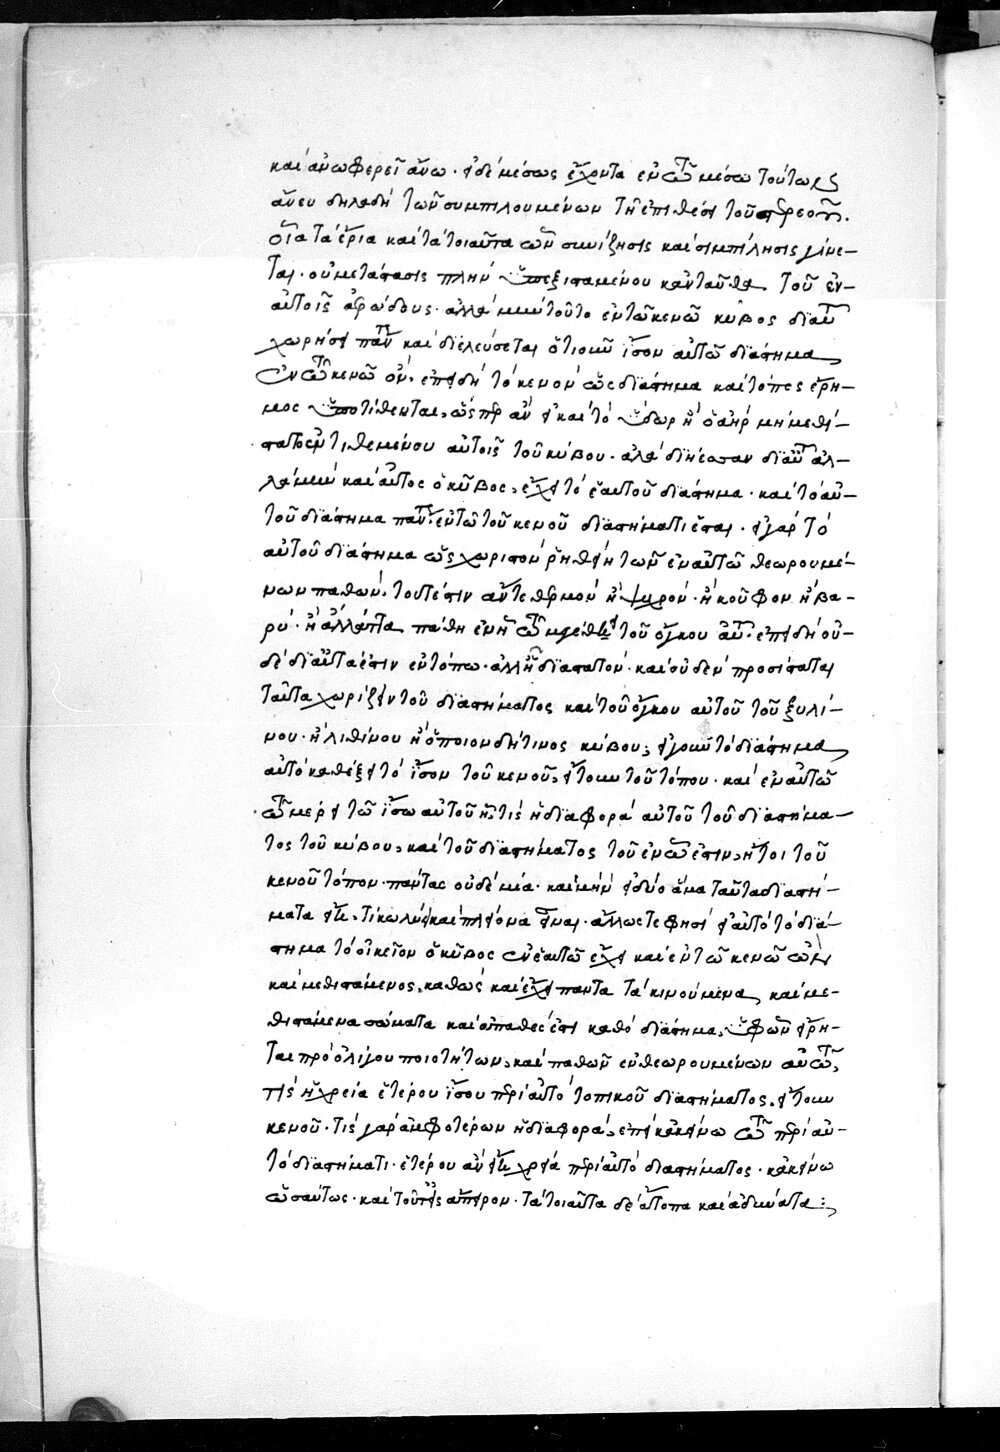 καὶ ἀνωφερεῖ ἄνω· εἰ δὲ μέσως ἔχοντα ἐν τῶ μέσω τούτων
ἄνευ δηλαδὴ τῶν συμπιλουμένων τῆ ἐπιθέσει τοῦ στερεοῦ.
οἷα τὰ ἔρια καὶ τὰ τοιαῦτα ὧν συνίζησις καὶ συμπίλησις γίνε-
ται· οὐ μετάστασις πλὴν ὑπεξισταμένου κἀνταῦθα τοῦ ἐν-
αὐτοῖς ἀερώδους· ἀλλὰ μὴν τοῦτο ἐν τῶ κενῶ κύβος
χωρήσει καὶ διελεύσεται ὁτιοῦν ἴσον αὐτῶ διάστημα
ἐν τῶ κενῶ ὄν· ἐπειδὴ τὸ κενὸν ὡς διάστημα καὶ τόπος ἔρη-
μος ὑποτίθενται, ὥσπερ ἂν εἰ καὶ τὸ ὕδωρ ἢ ὁ ἀὴρ μὴ μεθί-
στατο ἐντιθεμένου αὐτοῖς τοῦ κύβου· ἀλλὰ διήεσαν ἀλ-
λὰ μὴν καὶ αὐτὸς ὁ κύβος, ἔχει τὸ ἑαυτοῦ διάστημα· καὶ τὸ αὐ-
τοῦ διάστημα ἐν τῶ τοῦ κενοῦ διαστήματι ἔσται· εἰ γὰρ τὸ
αὐτοῦ διάστημα ὡς χωριστὸν ῥηθείη τῶν ἐν αὐτῶ θεωρουμέ-
νων παθῶν. τουτέστιν ἄν τε θερμὸν ἢ ψυχρόν· ἢ κοῦφον ἢ βα-
ρύ· ἢ ἄλλ' ἄττα πάθη τοῦ ὄγκου ἐπειδὴ οὐ-
δὲ δι' αὐτὰ ἐστιν ἐν τόπω· ἀλλὰ διαστατόν· καὶ οὐδὲν προσίσταται
ταῦτα χωρίζειν τοῦ διαστήματος καὶ τοῦ ὄγκου αὐτοῦ τοῦ ξυλί-
νου· ἢ λιθίνου ἢ ὁποίου δήτινος κύβου, τὸ διάστημα
αὐτὸ καθέξει τὸ ἴσον τοῦ κενοῦ, εἴτουν τοῦ τόπου· καὶ ἐν αὐτῶ
τῶ μέρει τῶ ἴσω αὐτοῦ τίς ἡ διαφορὰ αὐτοῦ τοῦ διαστήμα-
τος τοῦ κύβου, καὶ τοῦ διαστήματος τοῦ ἐν ὧ ἐστιν, ἤτοι τοῦ
κενοῦ τόπου· πάντως οὐδεμία· καὶ μὴν εἰ δύο ἅμα ταῦτα διαστή-
ματα τί κωλύει καὶ πλείονα εἶναι· ἄλλως τε φησὶ εἰ αὐτὸ τὸ διά-
στημα τὸ οἰκεῖον ὁ κύβος ἐν ἑαυτῶ ἔχει καὶ ἐν τῶ κενῶ ὢν
καὶ μεθιστάμενος, καθὼς καὶ ἔχει πάντα τὰ κινούμενα καὶ με-
θιστάμενα σώματα καὶ ἀπαθές ἐστι καθὸ διάστημα, εἴρη-
ται πρὸ ὀλίγου ποιοτήτων, καὶ παθῶν ἐνθεωρουμένων αὐτῶ,
τίς ἡ χρεία ἑτέρου ἴσου περὶ αὐτὸ τοπικοῦ διαστήματος, εἴτουν
κενοῦ· τίς γὰρ ἀμφοτέρων ἡ διαφορά, ἐπεὶ κἀκείνω τῶ περὶ αὐ-
τὸ διαστήματι· ἑτέρου ἂν εἴη χρεία περὶ αὐτὸ διαστήματος· κἀκείνω
ὡσαύτως· καὶ τοῦτο εἰς ἄπειρον· τὰ τοιαῦτα δὲ ἄτοπα καὶ ἀδύνατα: